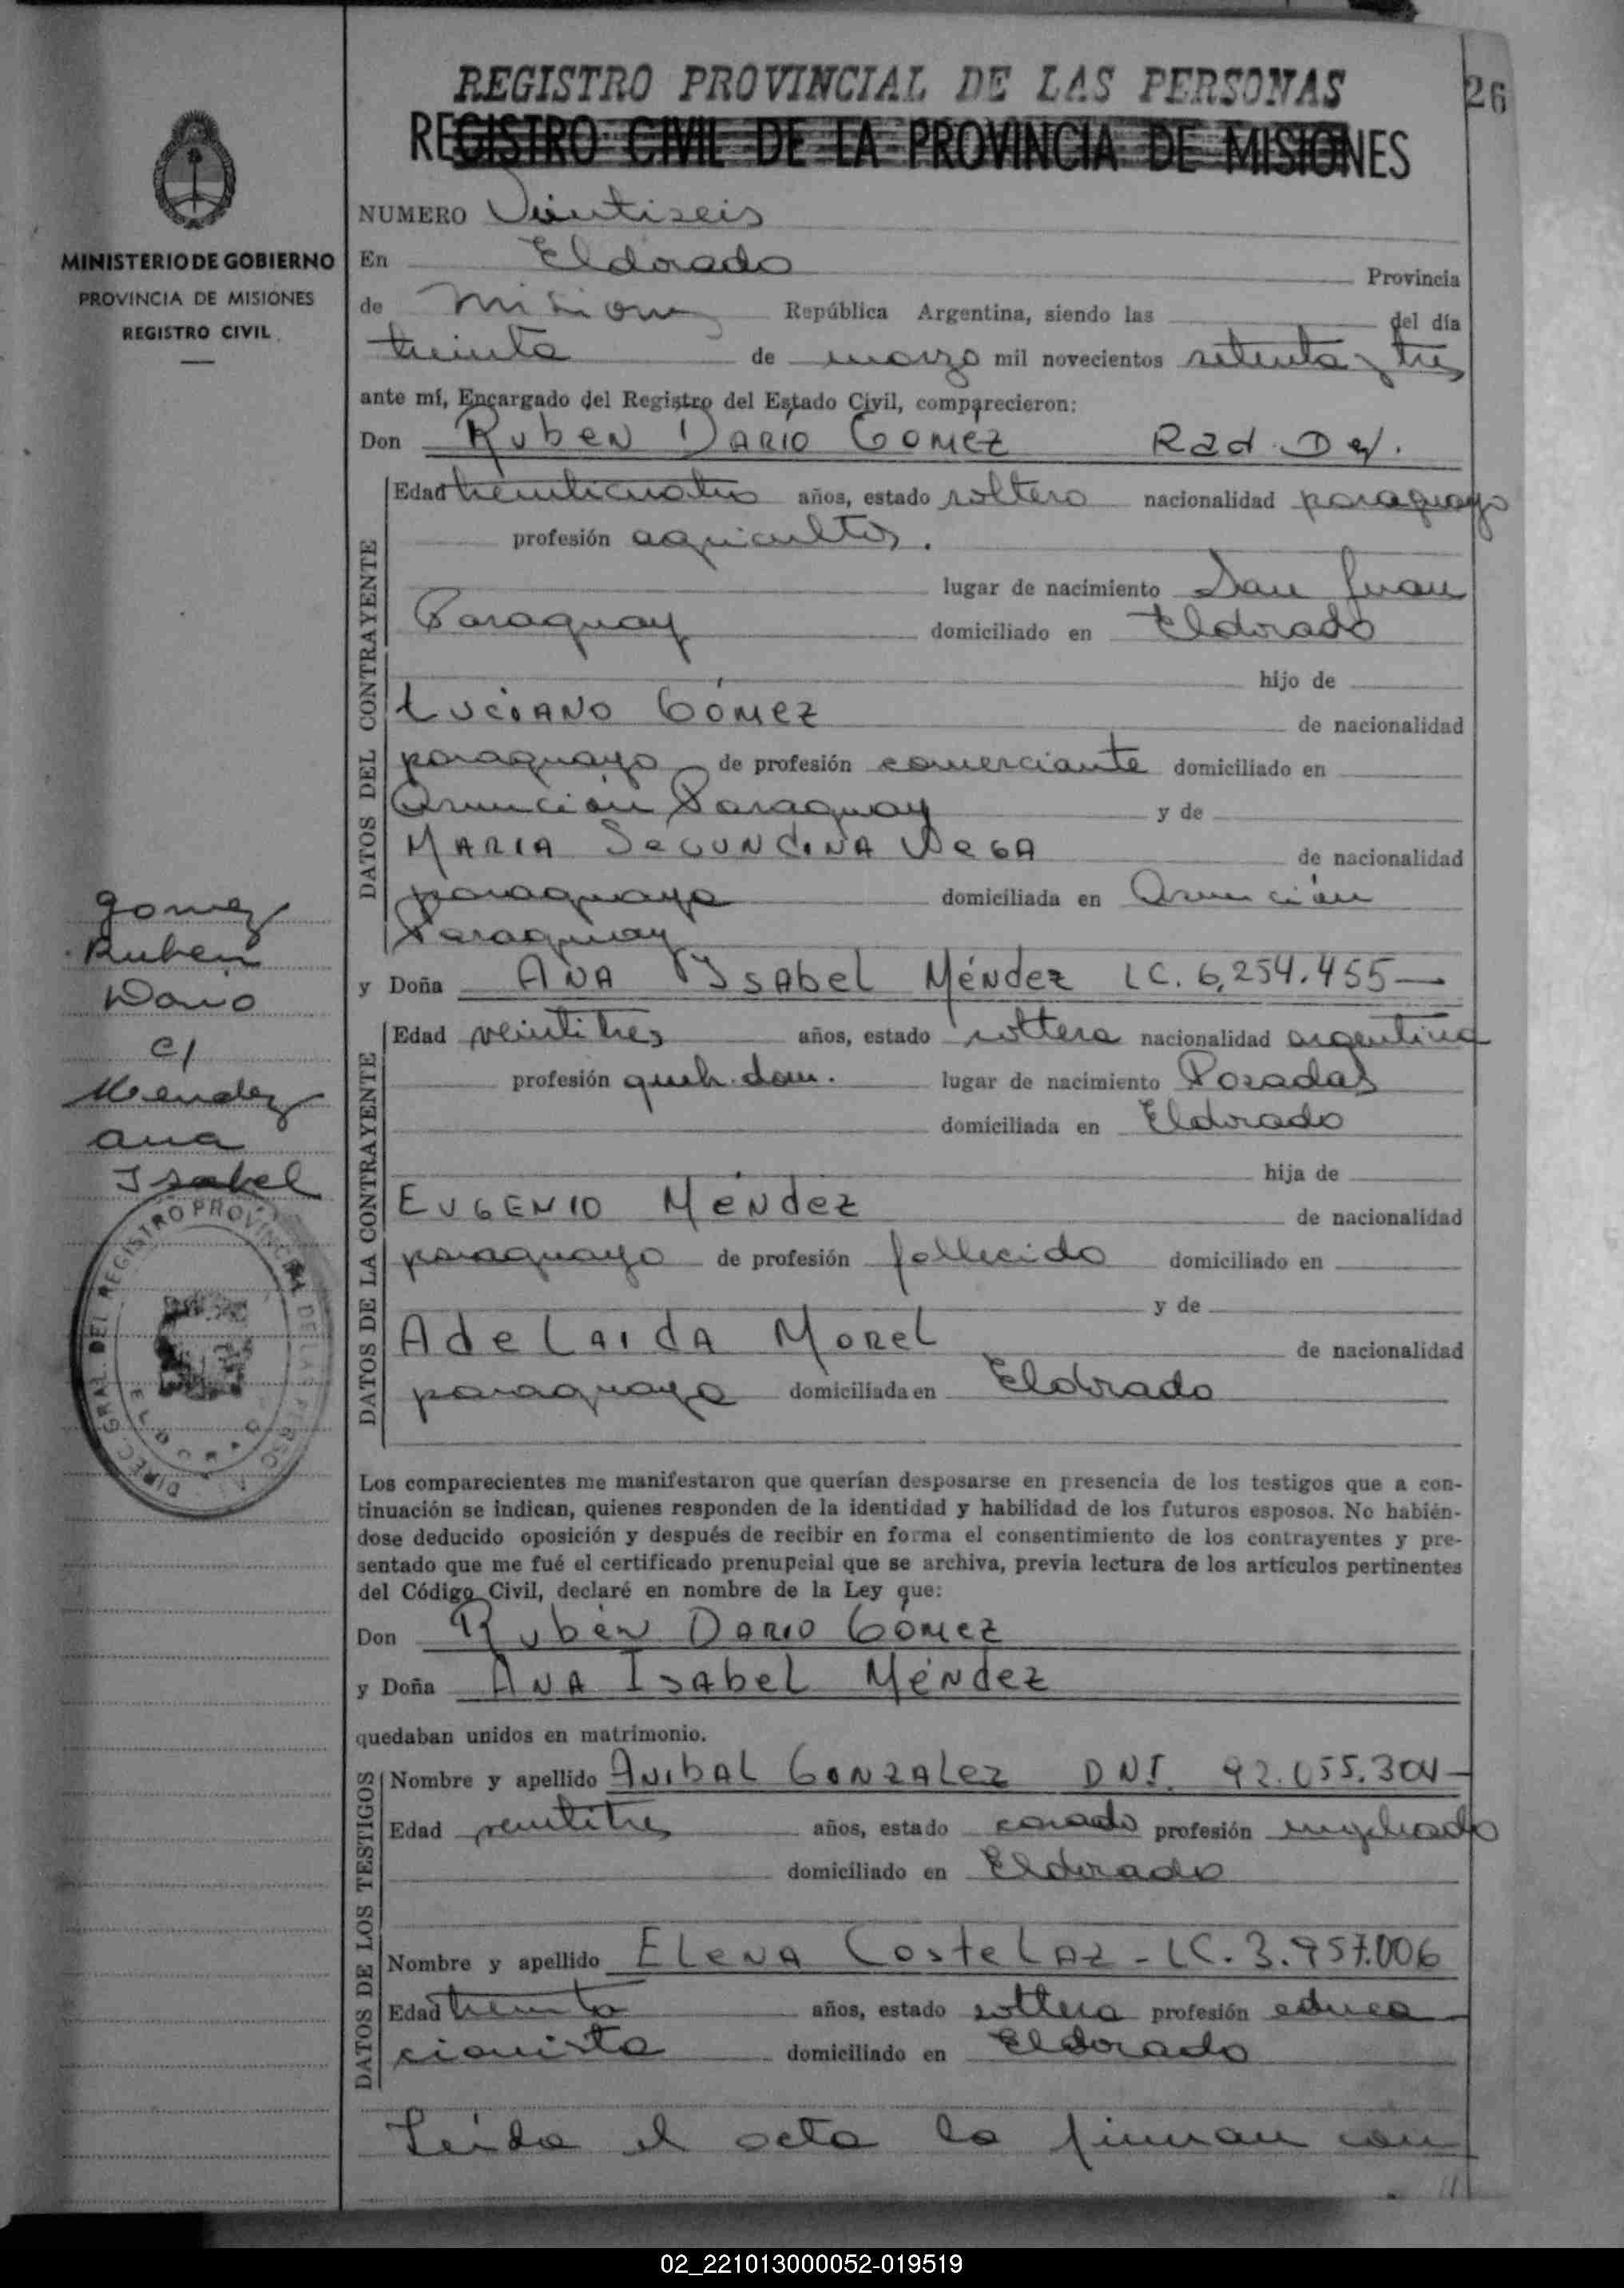 26
REGISTRO PROVINCIAL DE LAS PERSONAS
REGISTRO CIVIL DE LA PROVINCIA DE MISIONES
MINISTERIO DE GOBIERNO
PROVINCIA DE MISIONES
REGISTRO CIVIL
NUMERO Veintiseis
En Eldorado Provincia
de Misiones República Argentina, siendo las del día
treinta de marzo mil novecientos setenta y tres
ante mí, Encargado del Registro del Estado Civil, comparecieron:
Don Ruben Dario Gomez Rad. Def.
DATOS DEL CONTRAYENTE
Edad treinticuatro años, estado soltero nacionalidad paraguayo
profesión agricultor.
lugar de nacimiento San Juan
Paraguay domiciliado en Eldorado
hijo de
Luciano Gómez de nacionalidad
paraguayo de profesión comerciante domiciliado en
Asunción Paraguay y de
Maria Segundina Vega de nacionalidad
paraguaya domiciliada en Asunción
Paraguay
y Doña Ana Ysabel Méndez LC. 6,254.455—
DATOS DE LA CONTRAYENTE
Edad veintitres años, estado soltera nacionalidad argentina
profesión queh. dom. lugar de nacimiento Posadas
domiciliada en Eldorado
hija de
Eugenio Méndez de nacionalidad
paraguayo de profesión fallecido domiciliado en
y de
Adelaida Morel de nacionalidad
paraguaya domiciliada en Eldorado
Gomez
Ruben
Dario
c/
Mendez
Ana
Isabel
DIREC. GRAL. DEL REGISTRO PROVINCIAL DE LAS PERSONAS
ELDORADO
Los comparecientes me manifestaron que querían desposarse en presencia de los testigos que a con-
tinuación se indican, quienes responden de la identidad y habilidad de los futuros esposos. No habién-
dose deducido oposición y después de recibir en forma el consentimiento de los contrayentes y pre-
sentado que me fué el certificado prenupcial que se archiva, previa lectura de los artículos pertinentes
del Código Civil, declaré en nombre de la Ley que:
Don Rubén Dario Gómez
y Doña Ana Isabel Méndez
quedaban unidos en matrimonio.
DATOS DE LOS TESTIGOS
Nombre y apellido Anibal Gonzalez DNI. 92.055.304—
Edad veintitres años, estado casado profesión empleado
domiciliado en Eldorado
Nombre y apellido Elena Costelaz - LC. 3.957.006
Edad treinta años, estado soltera profesión educa
cionista domiciliado en Eldorado
Leída el acta la firman con
///
02_221013000052-019519